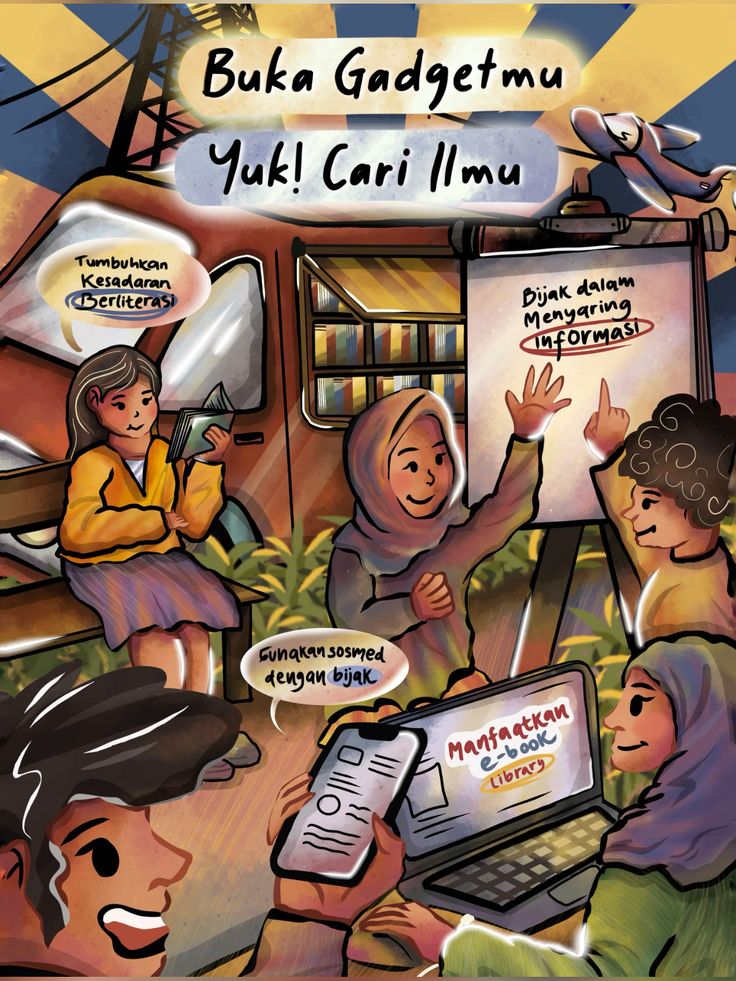 Buka Gadgetmu
Yuk! Cari Ilmu
Tumbuhkan
Kesadaran
Berliterasi
Bijak dalam
Menyaring
informasi
Gunakan sosmed
dengan bijak
Manfaatkan
e-book
Library